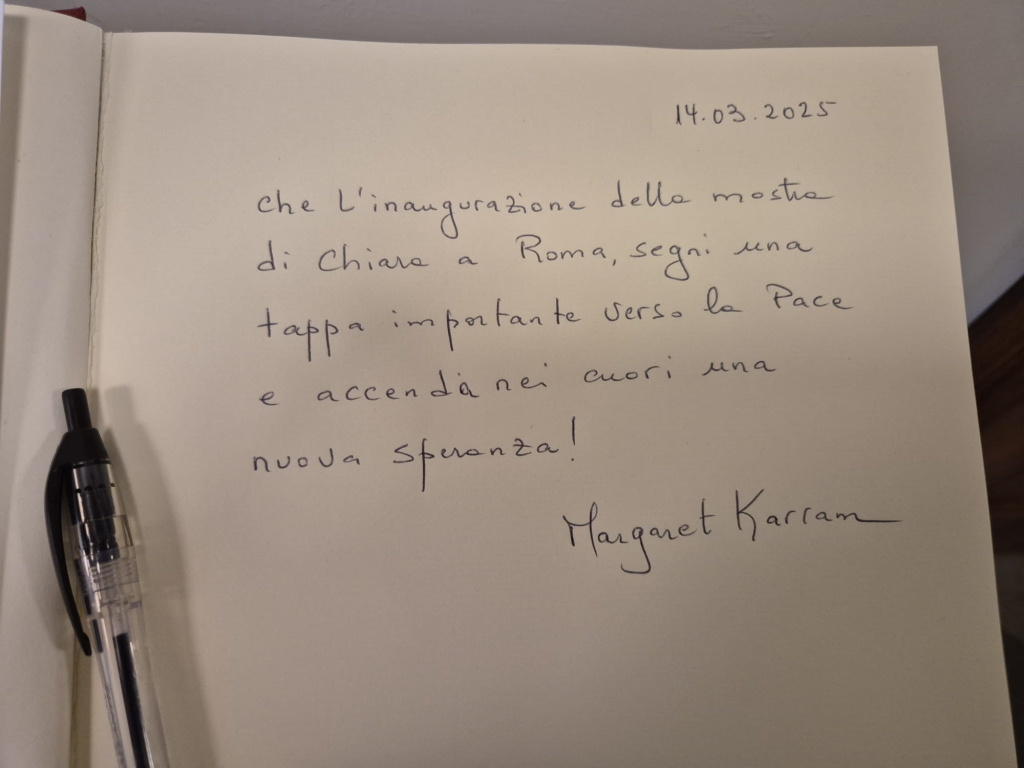 14.03.2025
che L'inaugurazione della mostra
di Chiara a Roma, segni una
tappa importante verso la Pace
e accenda nei cuori una
nuova speranza!
Margaret Karram